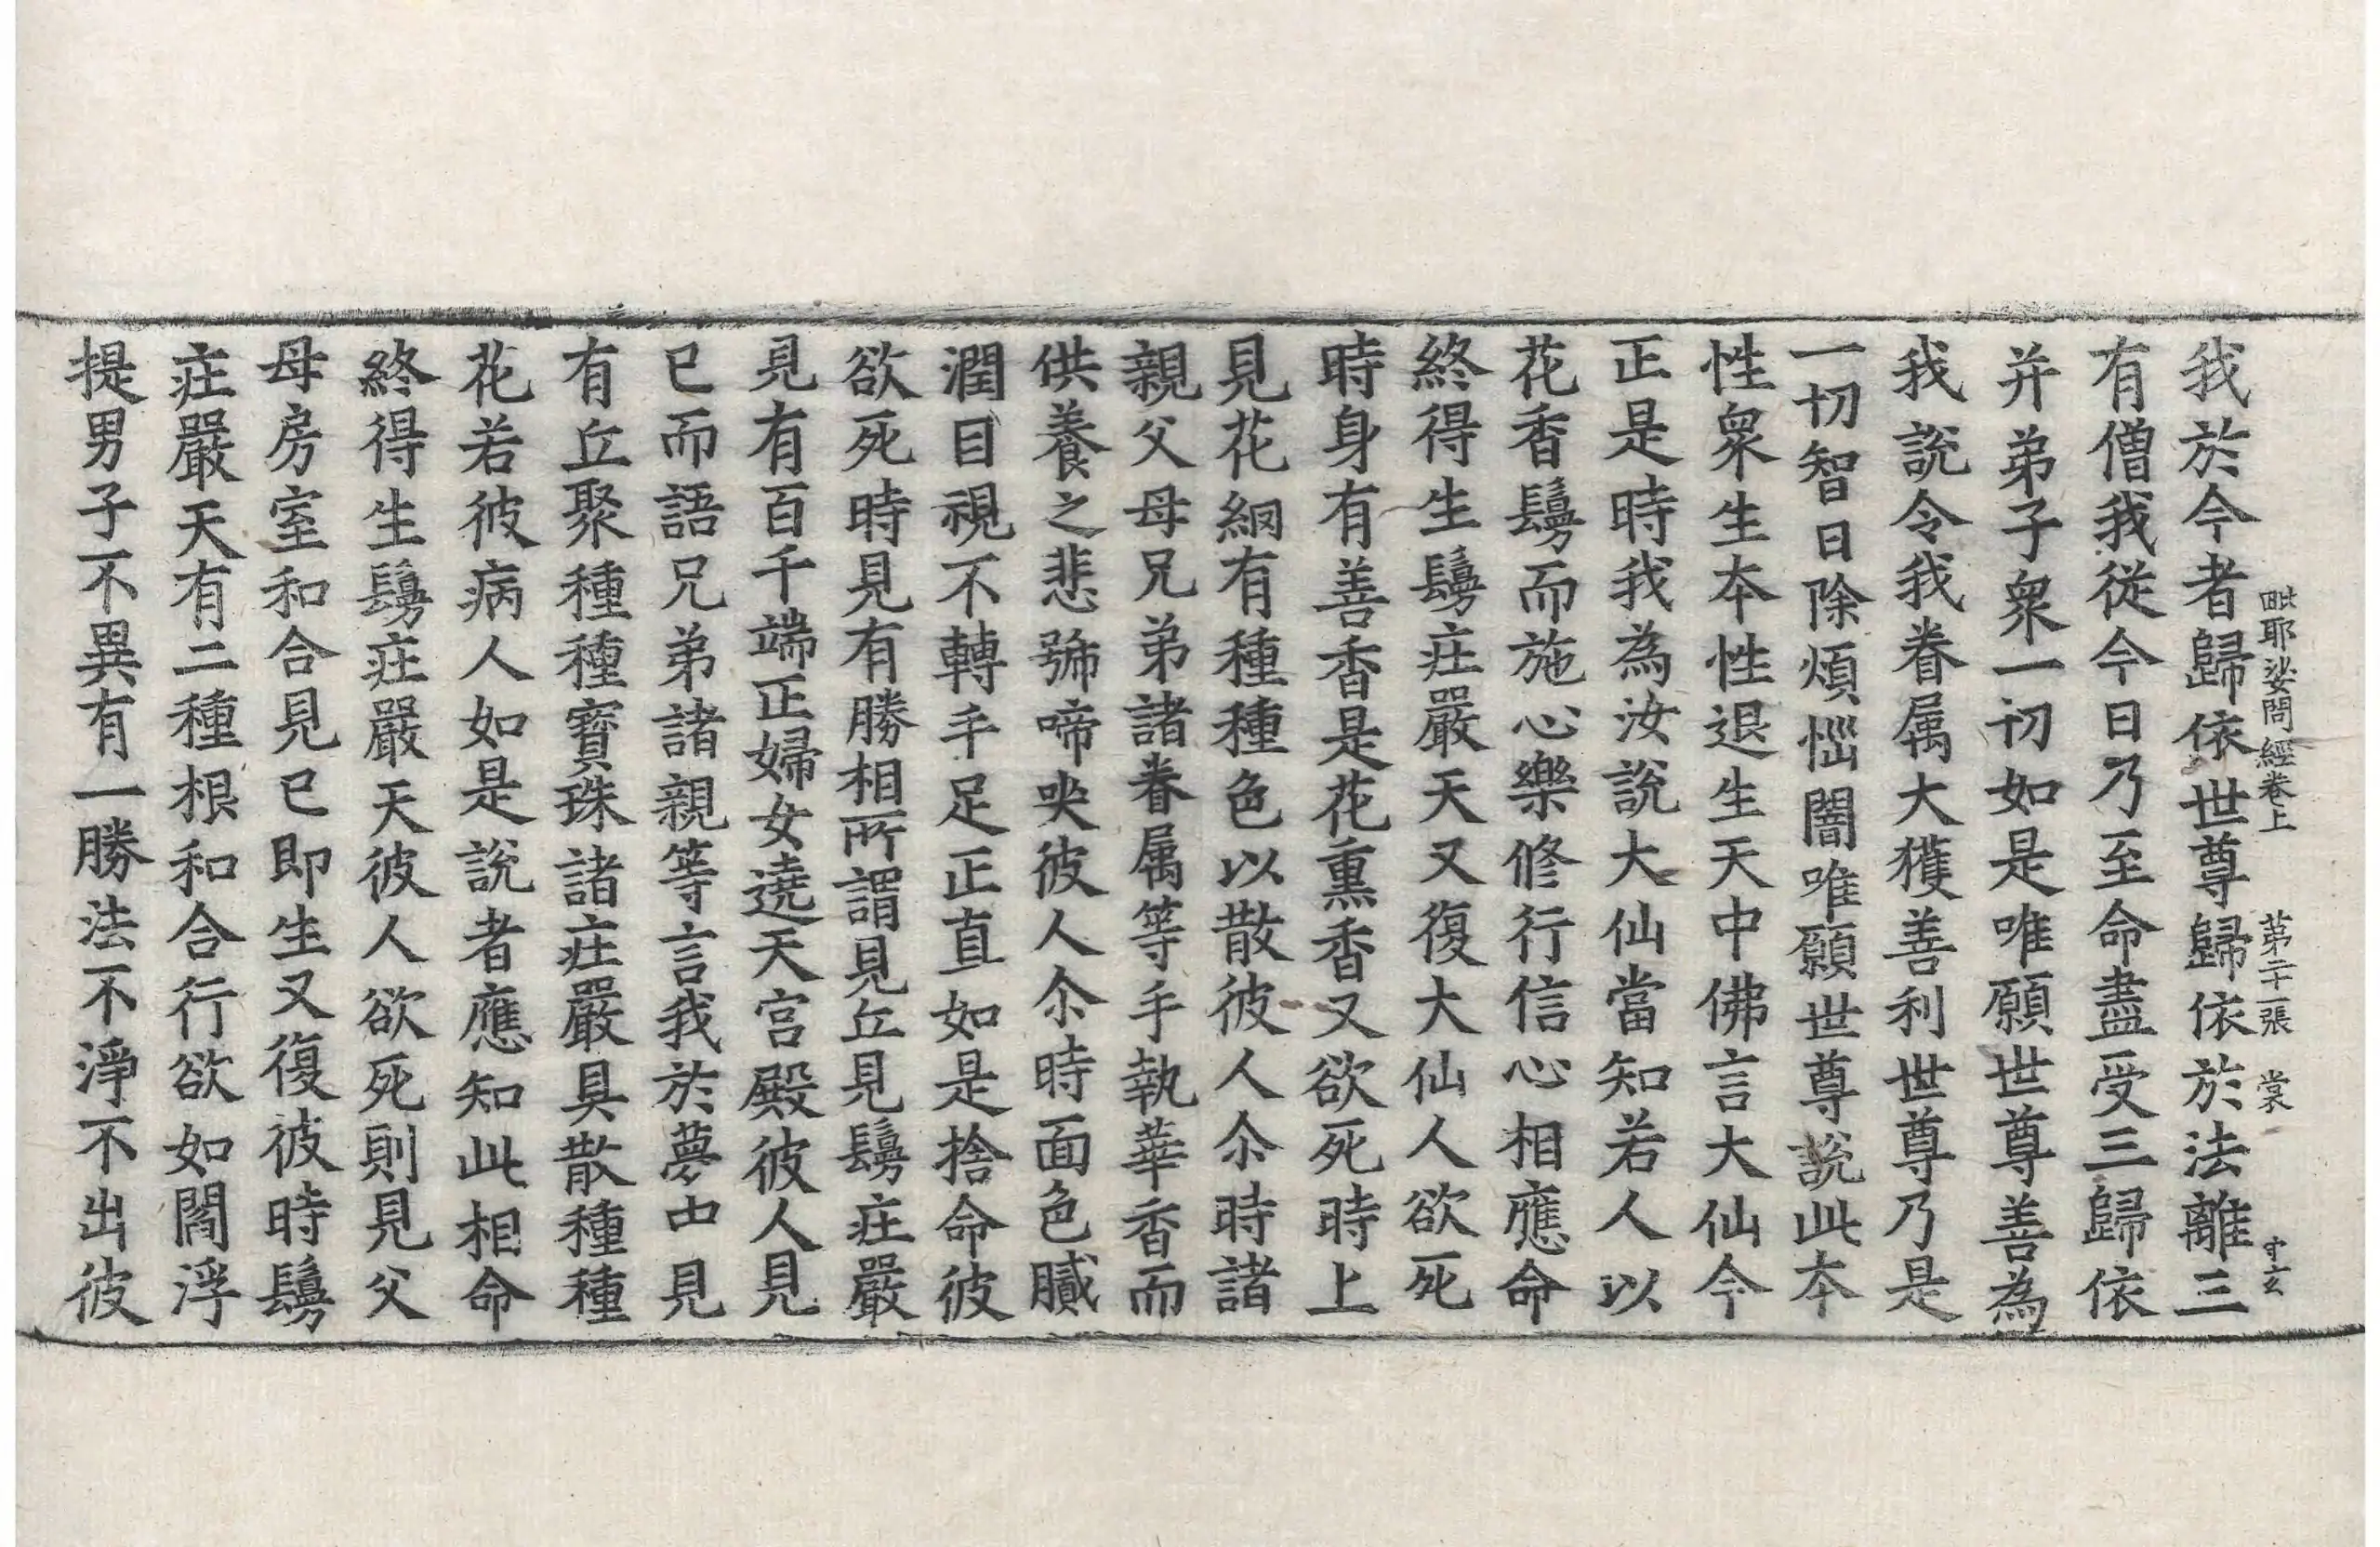 毗耶娑問經卷上　第二十一張　裳　守玄
我於今者歸依世尊歸依於法離三
有僧我從今日乃至命盡受三歸依
并弟子衆一切如是唯願世尊善為
我說令我眷属大獲善利世尊乃是
一切智日除煩惱闇唯願世尊說此本
性衆生本性退生天中佛言大仙今
正是時我為汝說大仙當知若人以
花香鬘而施心樂修行信心相應命
終得生鬘庄嚴天又復大仙人欲死
時身有善香是花熏香又欲死時上
見花網有種種色以散彼人尒時諸
親父母兄弟諸眷属等手執華香而
供養之悲號啼哭彼人尒時面色膩
潤目視不轉手足正直如是捨命彼
欲死時見有勝相所謂見丘見鬘庄嚴
見有百千端正婦女遶天宮殿彼人見
已而語兄弟諸親等言我於夢中見
有丘聚種種寶珠諸庄嚴具散種種
花若彼病人如是說者應知此相命
終得生鬘庄嚴天彼人欲死則見父
母房室和合見已即生又復彼時鬘
庄嚴天有二種根和合行欲如閻浮
提男子不異有一勝法不淨不出彼